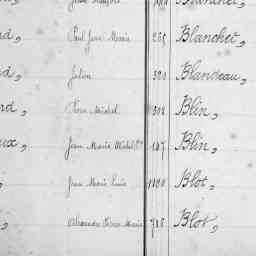 Paul Jean Marie 255 Blanchet,
d, Julien 320 Blandeau,
rd, Pierre Michel 308 Blin,
ux, Jean Marie Michel 187 Blin,
Jean Marie Louis 1820 Blot,
Alexandre Pierre Marie 785 Blot,